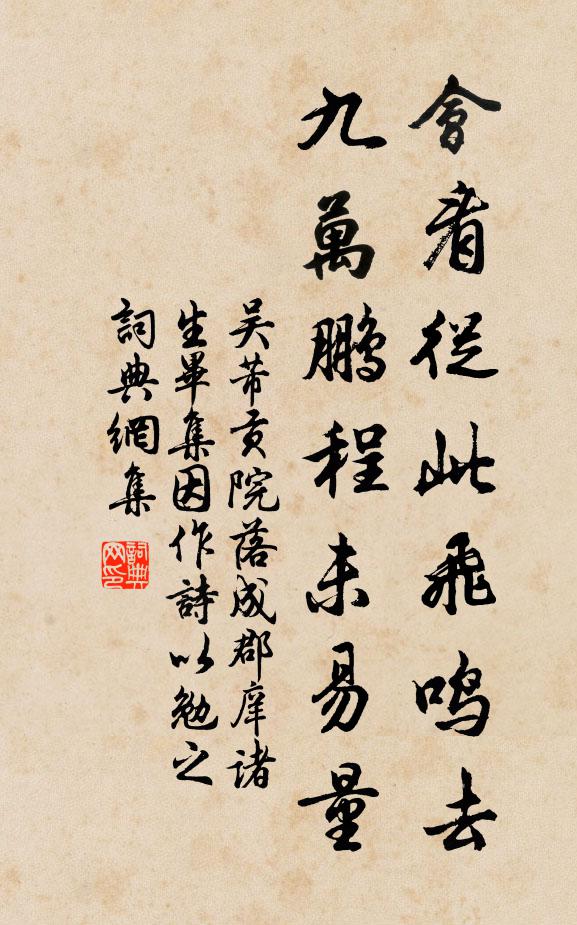 會看從此飛鳴去
九萬鵬程未易量
吴芾貢院落成郡庠諸
生畢集因作詩以勉之
詞典網集
詞典网印